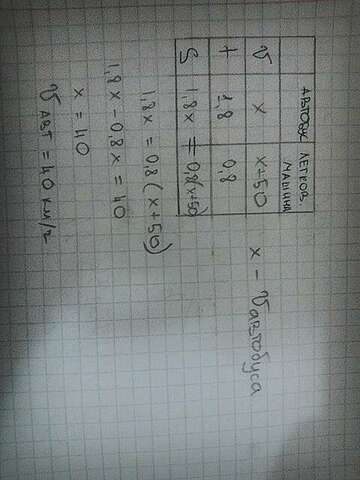 АВТОБУС ЛЕГКОВ. МАШИНА
v x x+50
t 1,8 0,8
S 1,8x = 0,8(x+50)
x – v автобуса
1,8x = 0,8(x+50)
1,8x – 0,8x = 40
x = 40
v авт = 40 км/ч